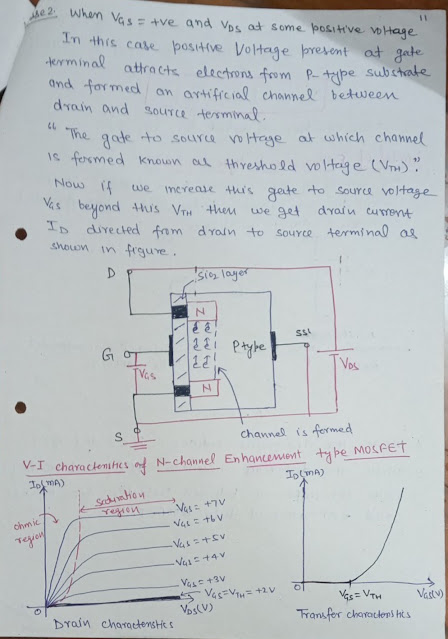 11
Case 2. When VGS = +ve and VDS at some positive voltage
In this case positive Voltage present at gate
terminal attracts electrons from P-type substrate
and formed an artificial channel between
drain and source terminal.
"The gate to source voltage at which channel
is formed known as threshold voltage (VTH)".
Now if we increase this gate to source voltage
VGS beyond this VTH then we get drain current
ID directed from drain to source terminal as
shown in figure.
D
SiO2 layer
N
G
P type
SS
VGS
VDS
N
S
channel is formed
V-I characteristics of N-channel Enhancement type MOSFET
ID(mA)
saturation
region
ohmic
region
VGS = +7V
VGS = +6V
VGS = +5V
VGS = +4V
VGS = +3V
VGS = VTH = +2V
0
VDS(V)
Drain characteristics
ID(mA)
0
VGS = VTH
VGS(V)
Transfer characteristics